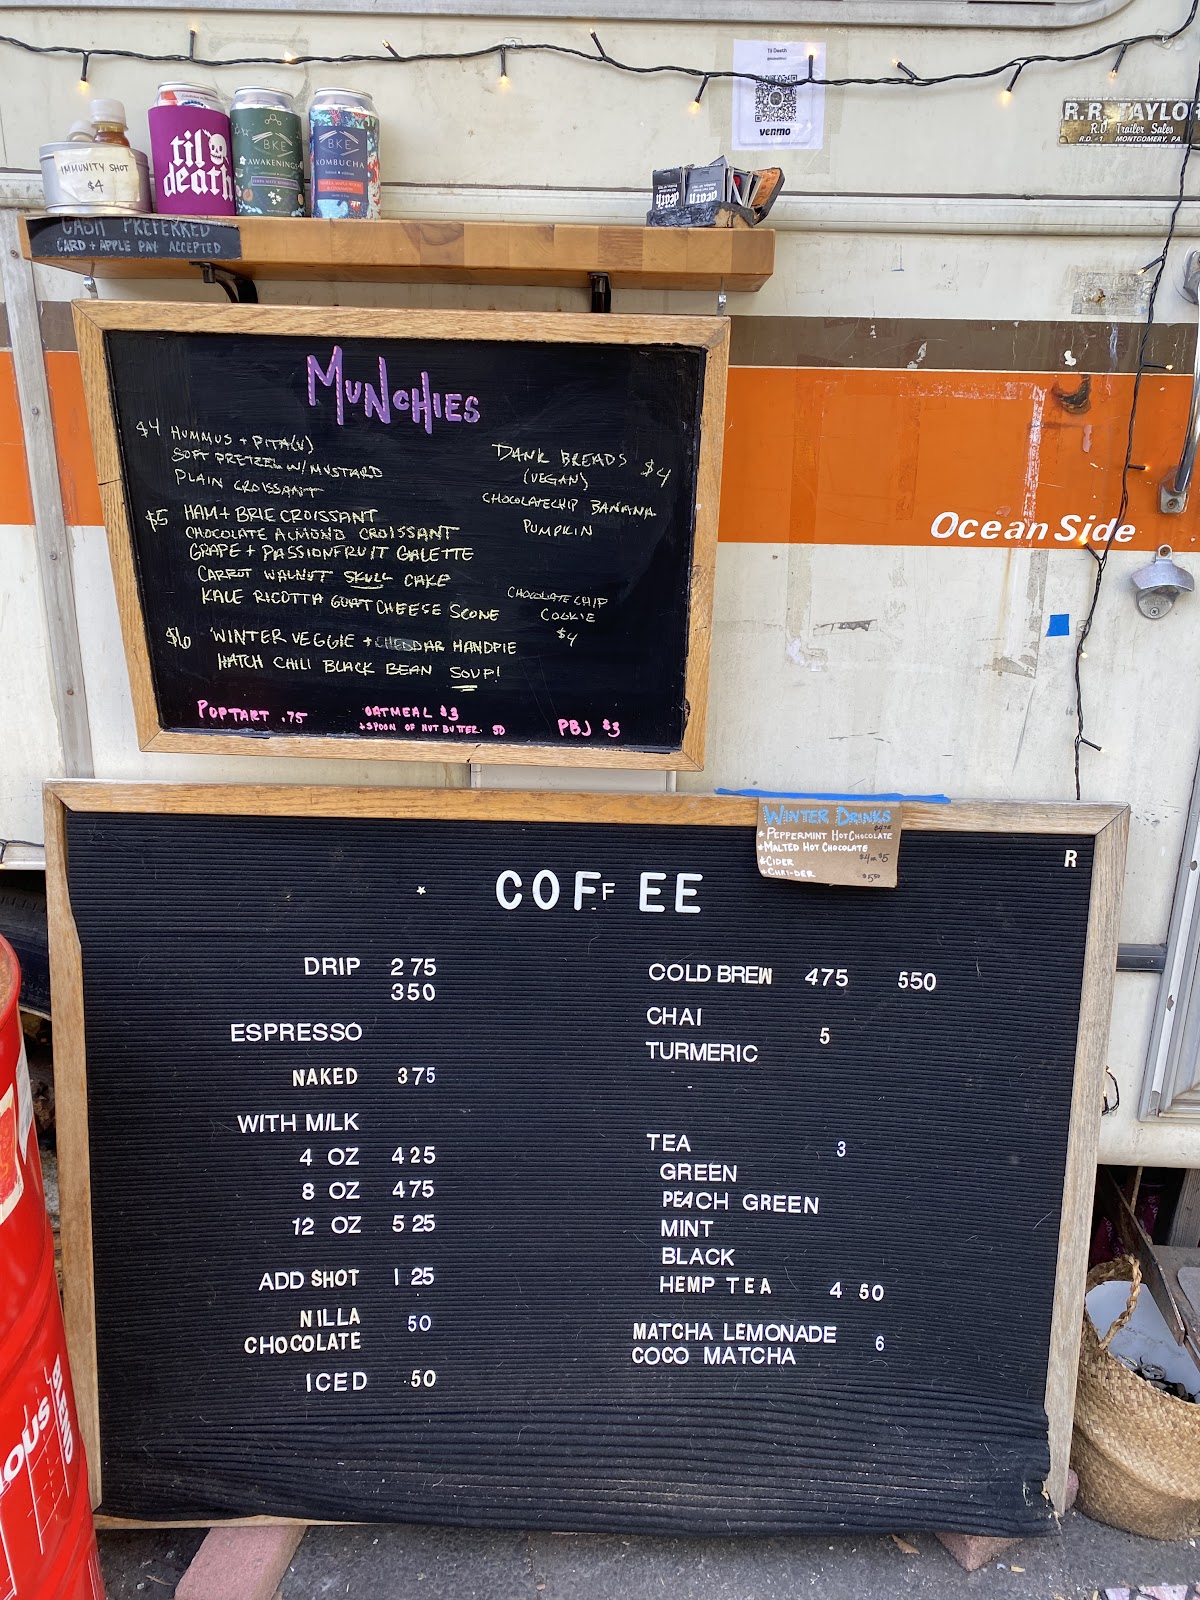 Til Death
venmo
R.R. TAYLO
R.D. Trailer Sales
R.D.-1. MONTGOMERY, PA
IMMUNITY SHOT
$4
til
death
BKE
AWAKENING
BKE
KOMBUCHA
CASH PREFERRED
CARD + APPLE PAY ACCEPTED
MUNCHIES
$4 HUMMUS + PITA(V)
SOFT PRETZEL W/ MUSTARD
PLAIN CROISSANT
$5 HAM + BRIE CROISSANT
CHOCOLATE ALMOND CROISSANT
GRAPE + PASSIONFRUIT GALETTE
CARROT WALNUT SKULL CAKE
KALE RICOTTA GOAT CHEESE SCONE
$6 WINTER VEGGIE + CHEDDAR HANDPIE
HATCH CHILI BLACK BEAN SOUP!
DANK BREADS $4
(VEGAN)
CHOCOLATECHIP BANANA
PUMPKIN
CHOCOLATE CHIP
COOKIE
$4
POPTART .75
OATMEAL $3
+SPOON OF NUT BUTTER .50
PBJ $3
Ocean Side
WINTER DRINKS
* PEPPERMINT HOT CHOCOLATE
* MALTED HOT CHOCOLATE
* CIDER $4 or $5
* CHAI-DER $5.50
R
COFFEE
DRIP 275
350
ESPRESSO
NAKED 375
WITH MILK
4 OZ 425
8 OZ 475
12 OZ 525
ADD SHOT 125
NILLA
CHOCOLATE 50
ICED .50
COLD BREW 475 550
CHAI
5
TURMERIC
TEA 3
GREEN
PEACH GREEN
MINT
BLACK
HEMP TEA 4 50
MATCHA LEMONADE 6
COCO MATCHA
OUS
BLEND